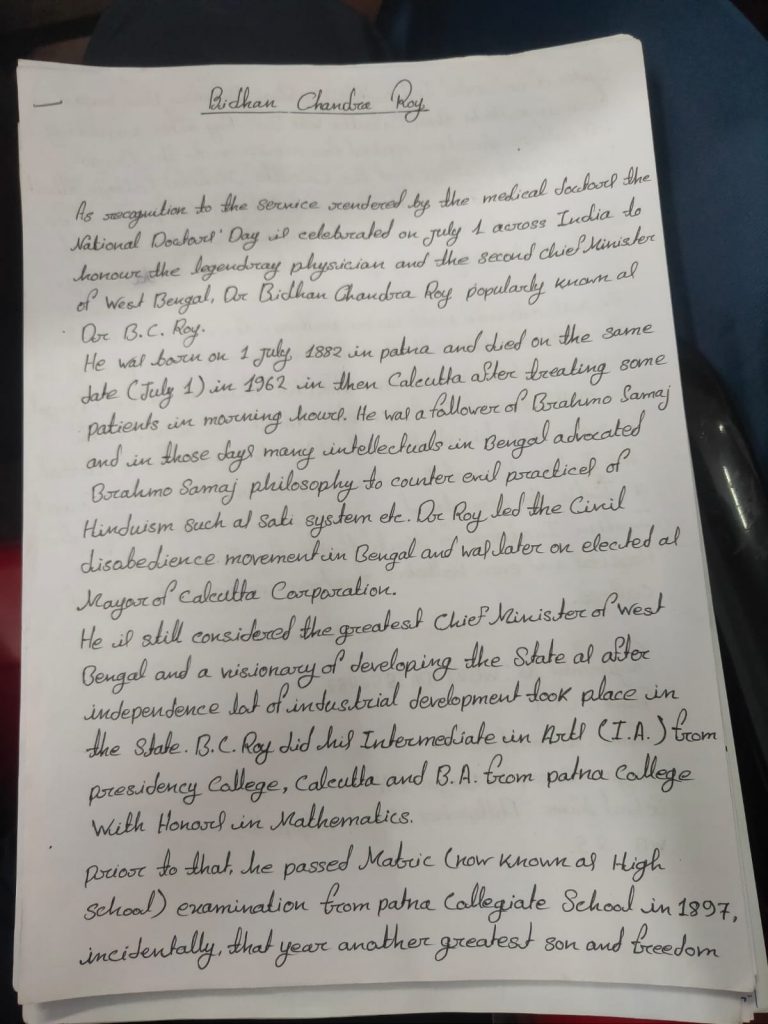 Bidhan Chandra Roy
As recognition to the service rendered by the medical doctors the
National Doctors' Day is celebrated on July 1 across India to
honour the legendray physician and the second chief Minister
of West Bengal, Dr Bidhan Chandra Roy popularly known as
Dr B.C. Roy.
He was born on 1 July, 1882 in patna and died on the same
date (July 1) in 1962 in then Calcutta after treating some
patients in morning hours. He was a follower of Brahmo Samaj
and in those days many intellectuals in Bengal advocated
Brahmo Samaj philosophy to counter evil practices of
Hinduism such as Sati system etc. Dr Roy led the Civil
disobedience movement in Bengal and was later on elected as
Mayor of Calcutta Corporation.
He is still considered the greatest Chief Minister of West
Bengal and a visionary of developing the State as after
independence lot of industrial development took place in
the State. B.C. Roy did his Intermediate in Arts (I.A.) from
presidency College, Calcutta and B.A. from patna College
With Honors in Mathematics.
prior to that, he passed Matric (now known as High
School) examination from patna Collegiate School in 1897,
incidentally, that year another greatest son and freedom